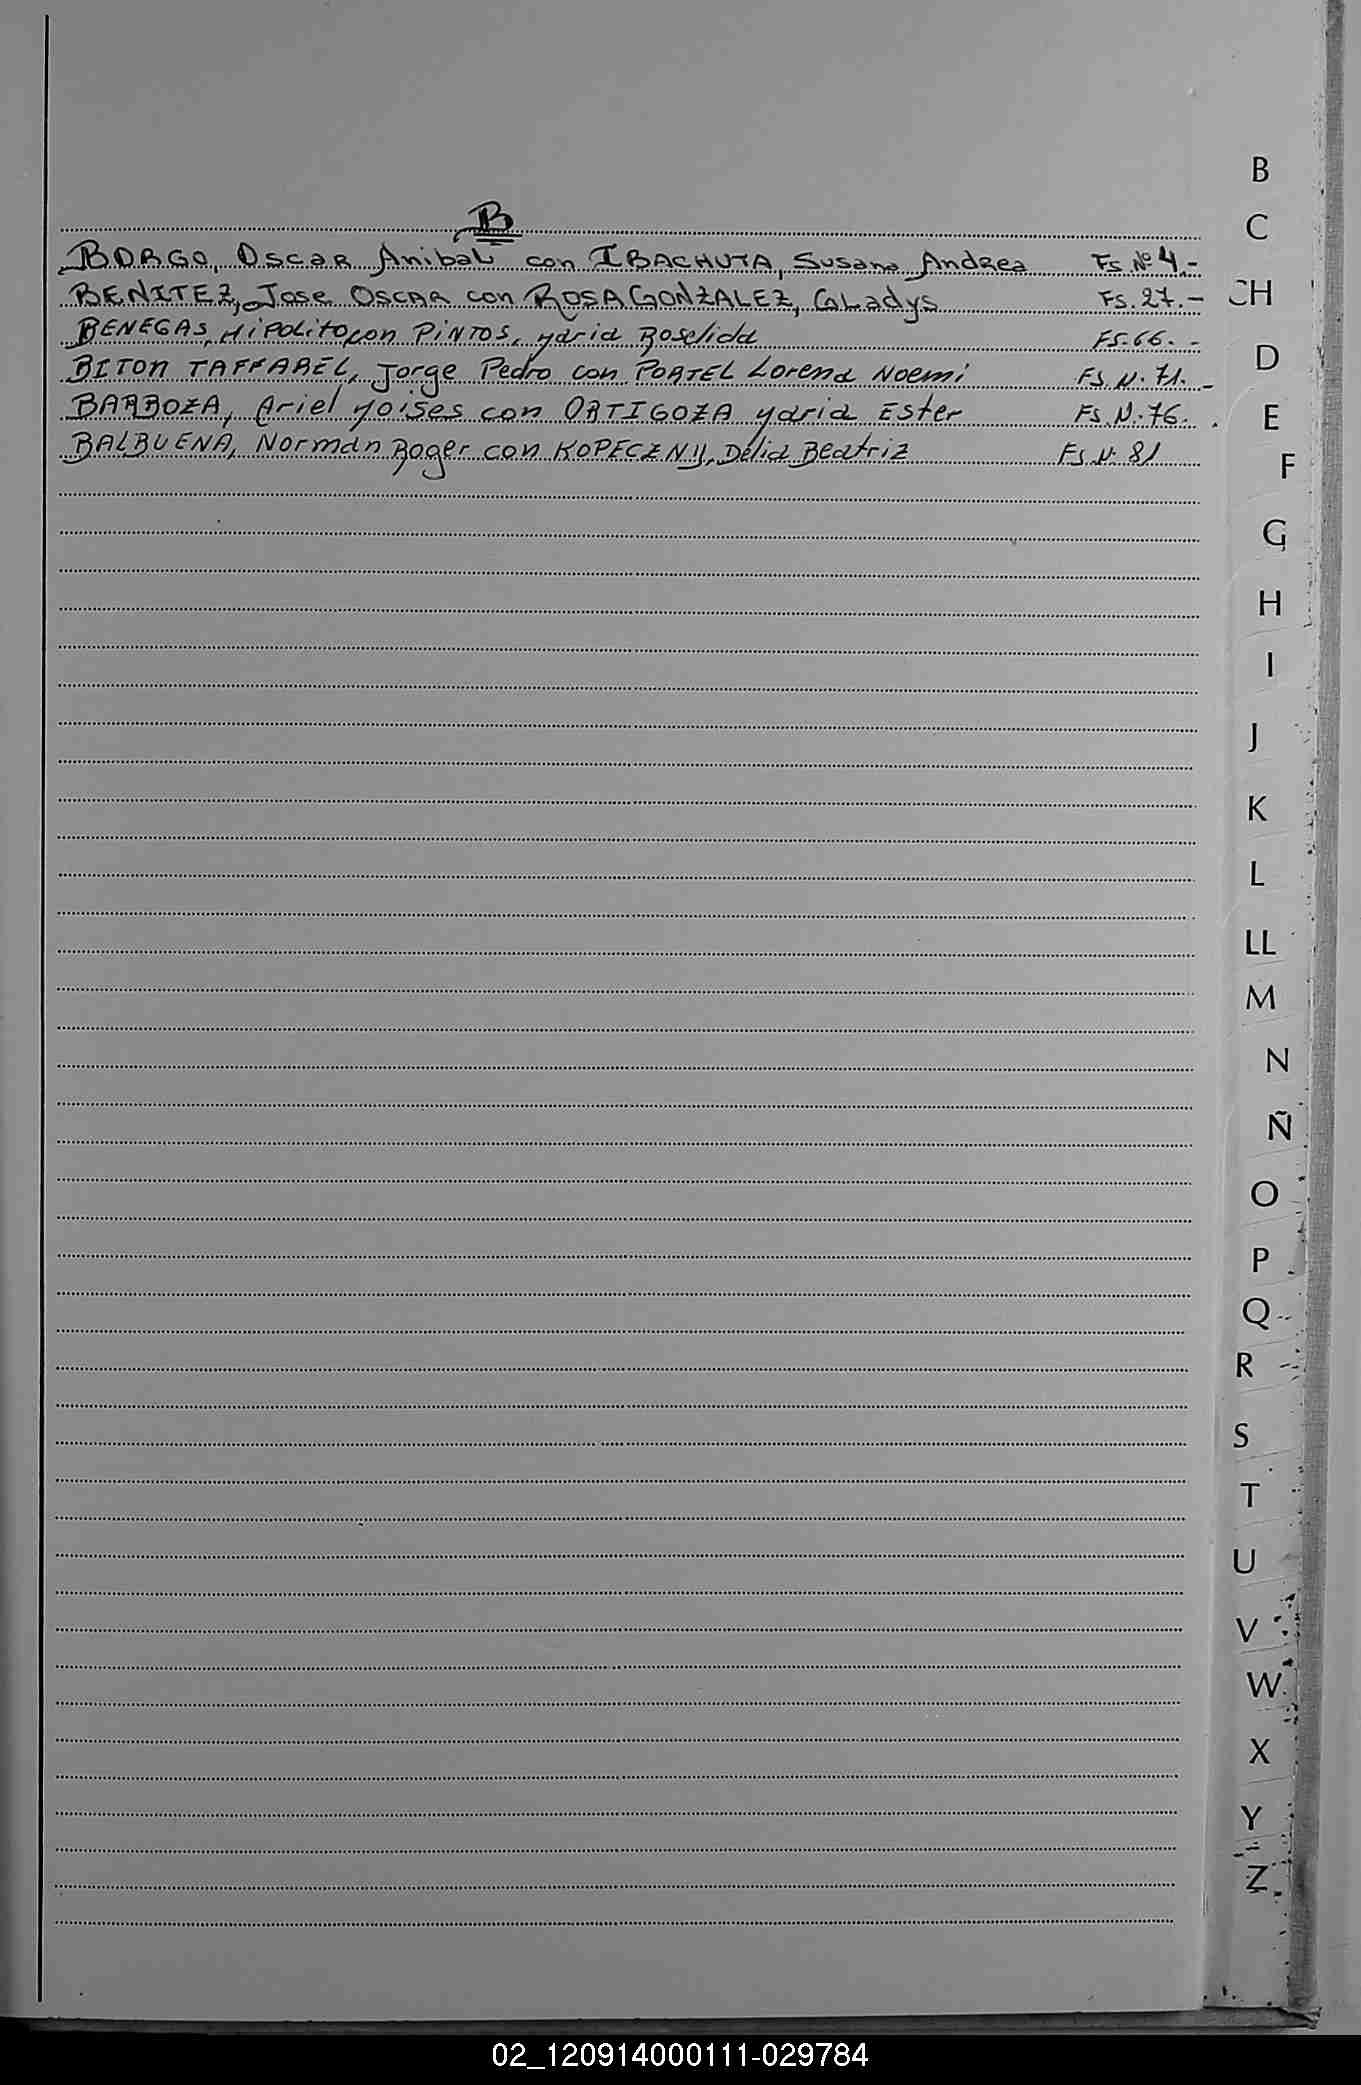 B
BORGO, Oscar Anibal con IBACHUTA, Susana Andrea Fs. Nº 4.-
BENITEZ, Jose Oscar con ROSA GONZALEZ, Gladys Fs. 27.-
BENEGAS, Hipolito con PINTOS, Maria Roselida FS. 66.-
BITON TAFFAREL, Jorge Pedro con PORTEL Lorena Noemi FS. N. 71.-
BARBOZA, Ariel Moises con ORTIGOZA Maria Ester Fs. N. 76.
BALBUENA, Norman Roger con KOPECZNY, Delia Beatriz Fs. N. 81
B
C
CH
D
E
F
G
H
I
J
K
L
LL
M
N
Ñ
O
P
Q
R
S
T
U
V
W
X
Y
Z
02_120914000111-029784